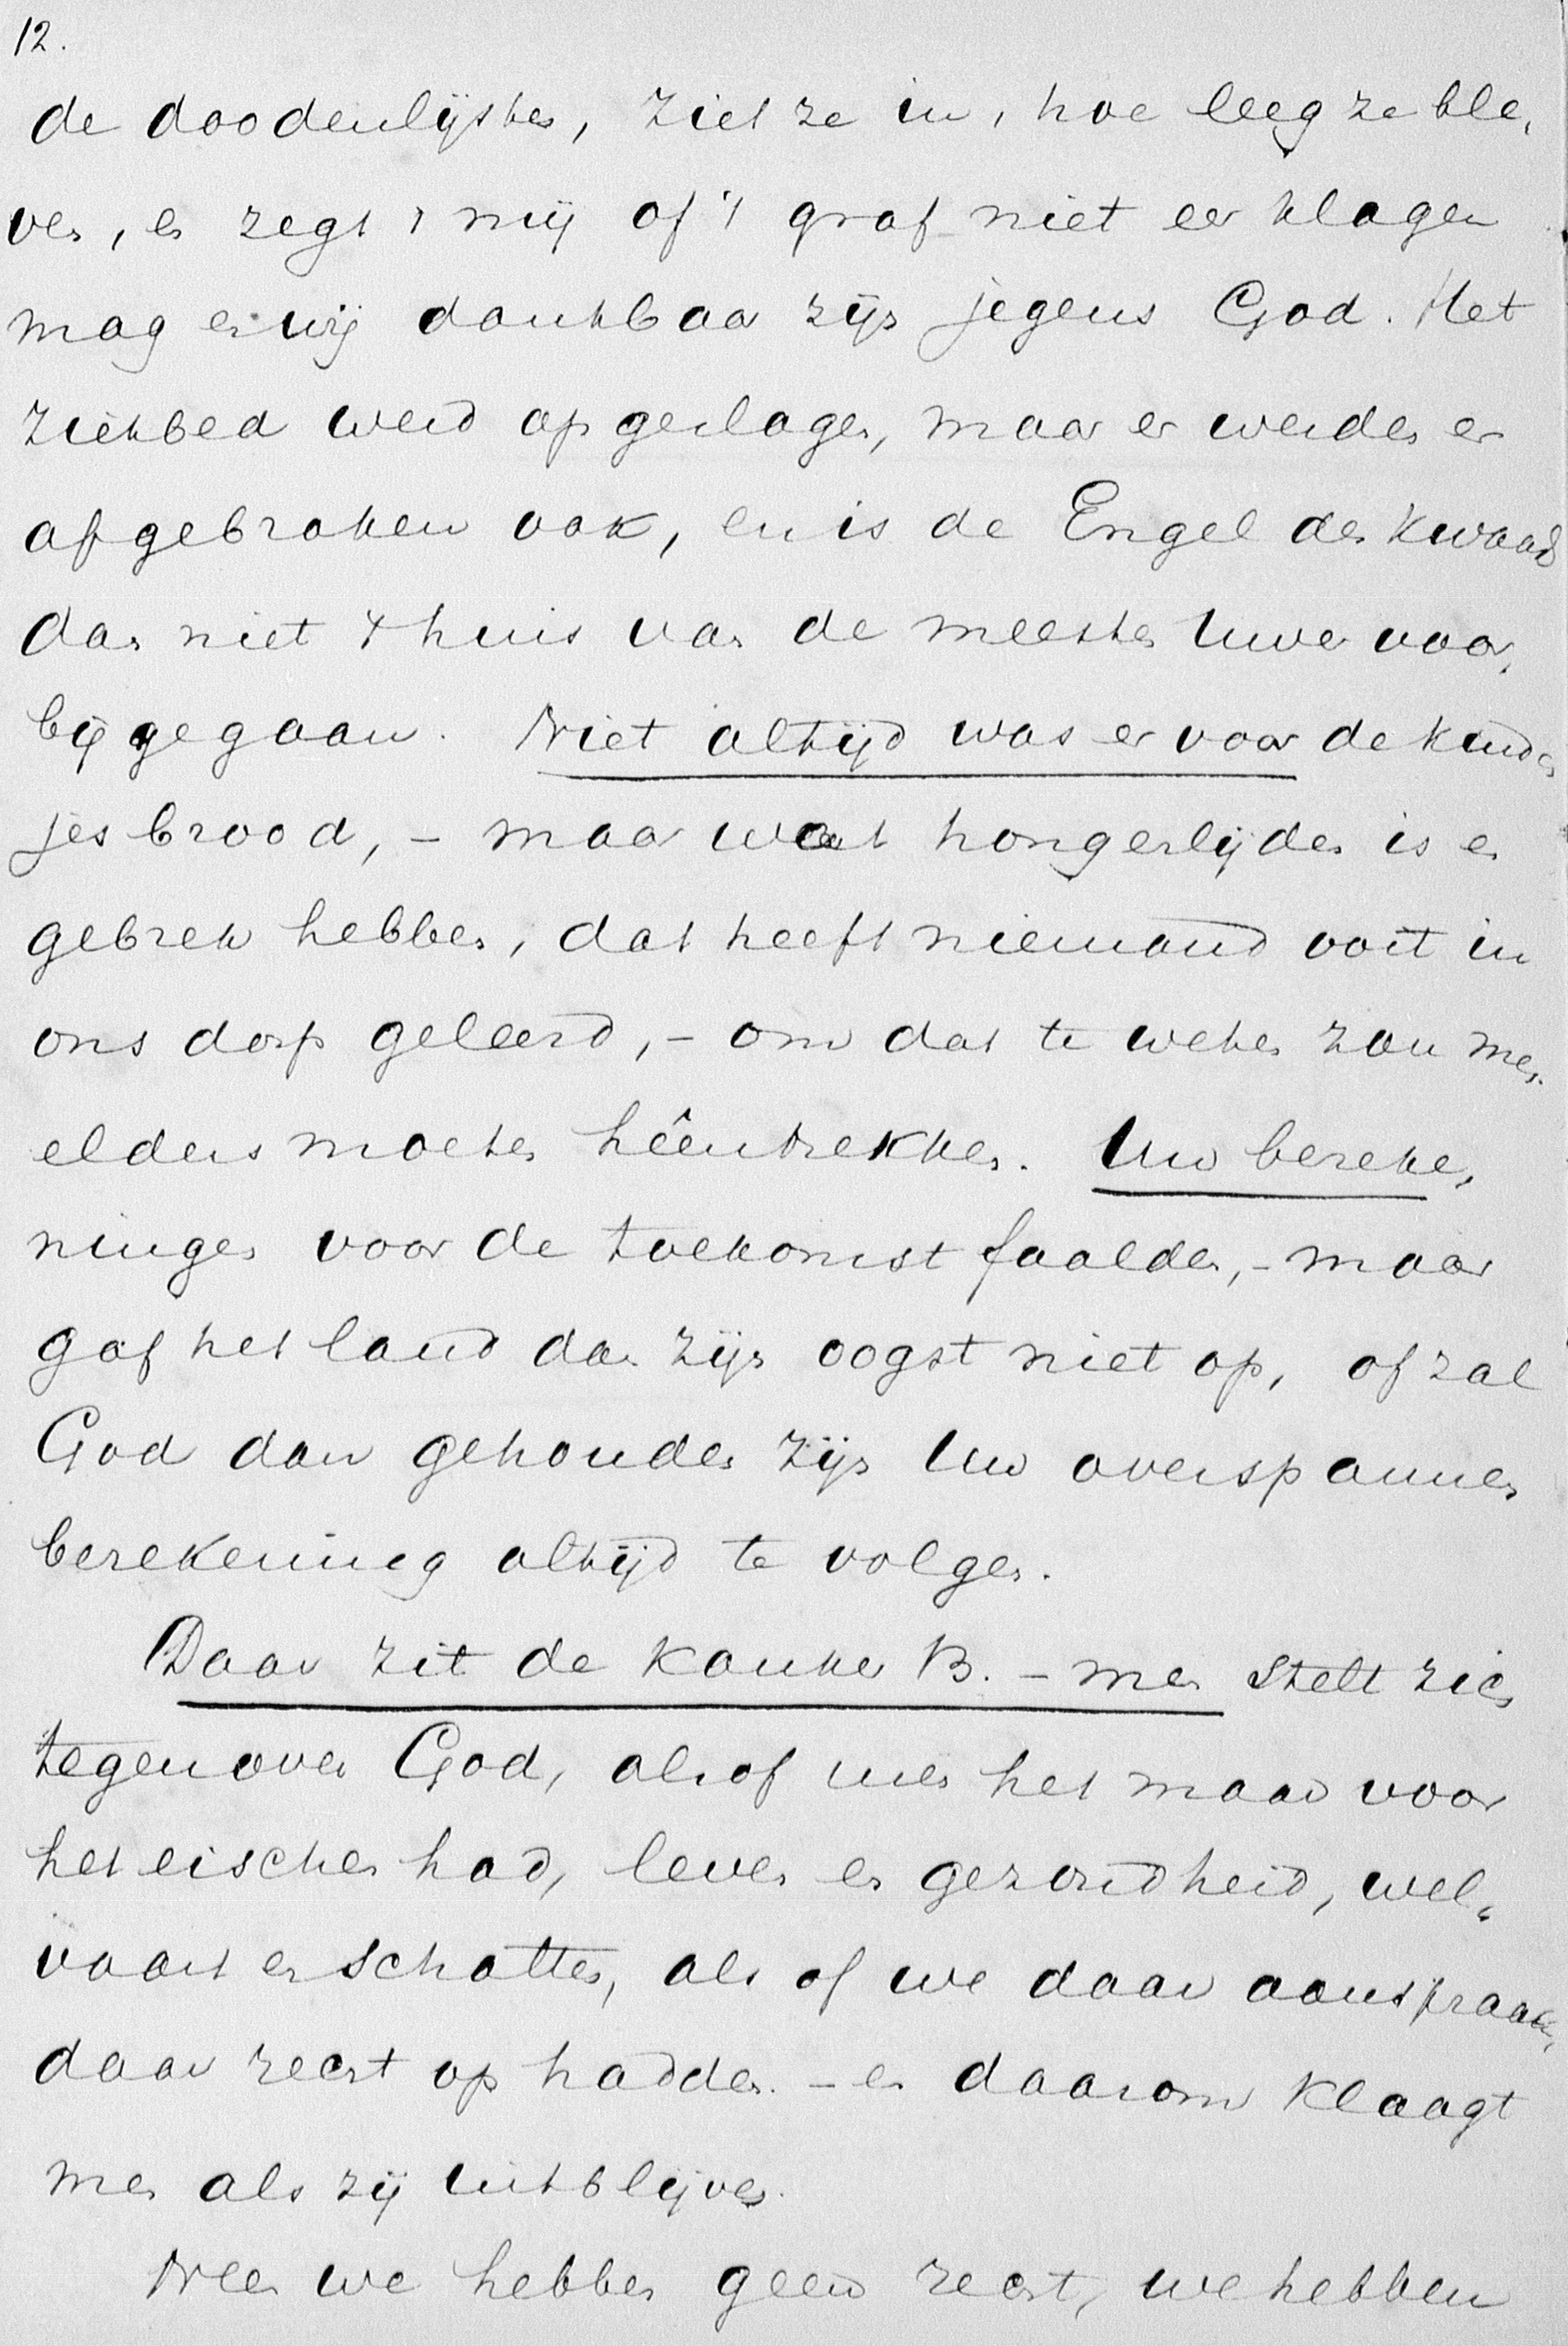 12.
de doodenlijsten, ziet ze in, hoe leeg ze ble,
ven, en zegt 't mij of 't graf niet eer klagen
mag en wij dankbaar zijn jegens God. Het
ziekbed werd opgeslagen, maar er werden er
afgebroken ook, en is de Engel des kwaads
dan niet 't huis van de meesten Uwer voor,
bij gegaan. Niet altijd was er voor de kinder
jes brood, – maar wat hongerlijden is en
gebrek hebben, dat heeft niemand ooit in
ons dorp geleerd, – om dat te weten zou men
elders moeten hêentrekken. Uw bereke,
ningen voor de toekomst faalden, – maar
gaf het land dan zijn oogst niet op, of zal
God dan gehouden zijn Uw overspannen
berekening altijd te volgen.
Daar zit de kanker B. – men stelt zich
tegenover God, alsof men het maar voor
het eischen had, leven en gezondheid, wel,
vaart en schatten, als of we daar aanspraak,
daar recht op hadden. – en daarom klaagt
men als zij uitblijven.
Neen we hebben geen recht, we hebben